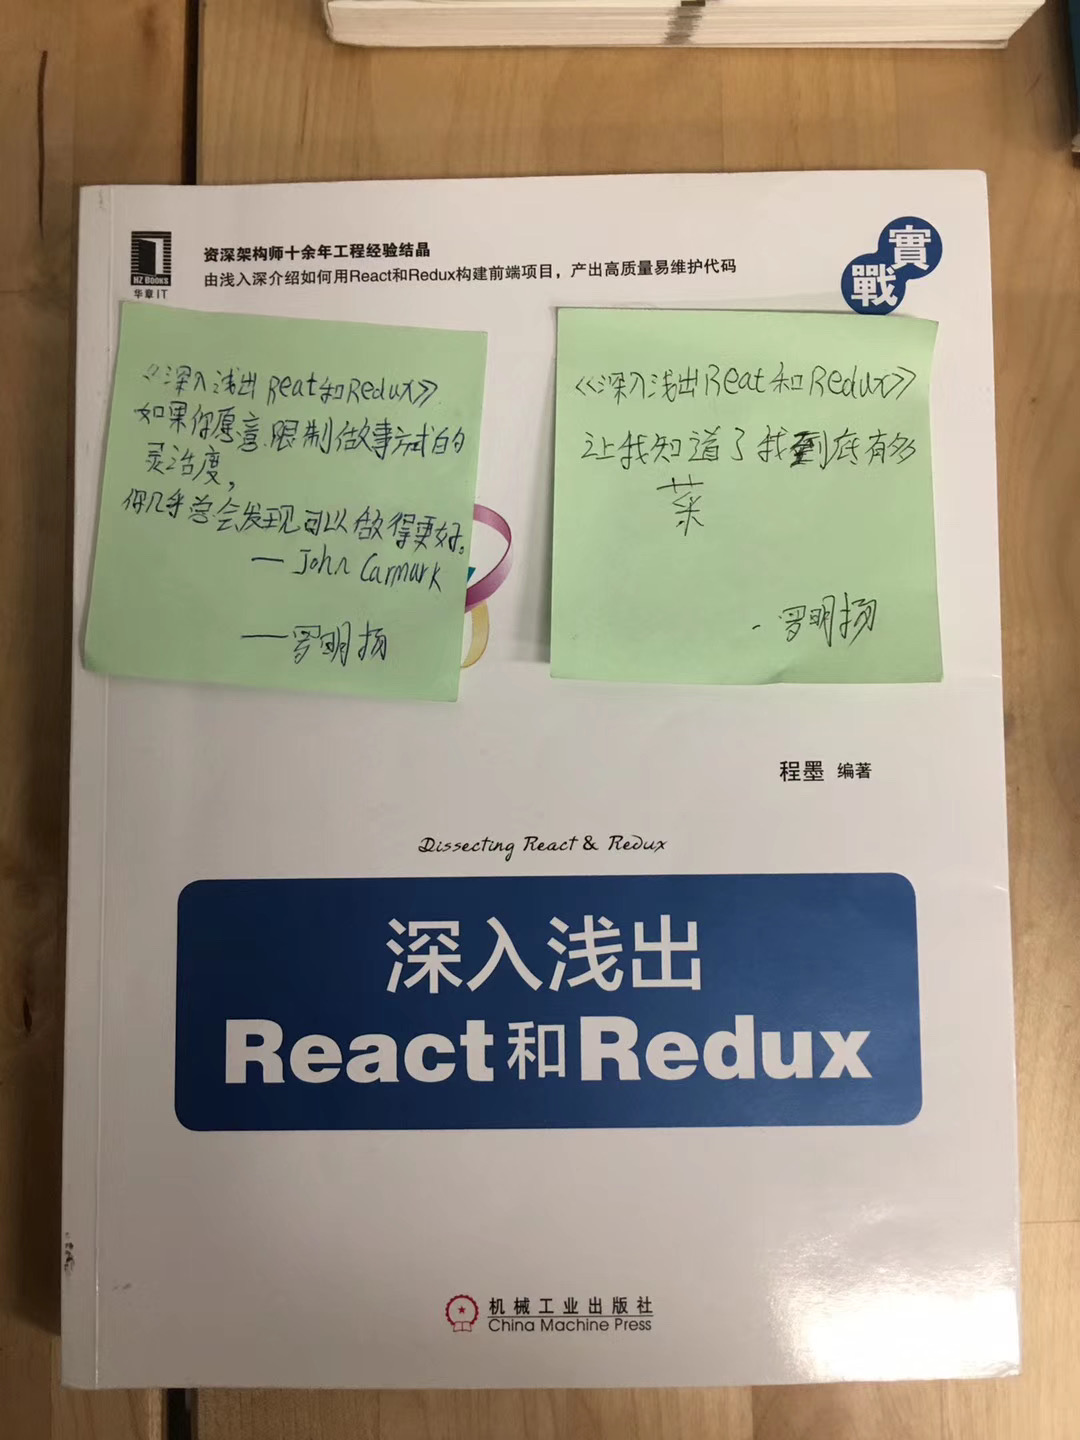 资深架构师十余年工程经验结晶
由浅入深介绍如何用React和Redux构建前端项目，产出高质量易维护代码
HZ Books
华章IT
實戰
《深入浅出Reat和Redux》
如果你愿意限制做事方式的
灵活度，
你几乎总会发现可以做得更好。
— John Carmark
—罗明扬
《深入浅出Reat和Redux》
让我知道了我到底有多
菜
-罗明扬
程墨 编著
Dissecting React & Redux
深入浅出
React和Redux
机械工业出版社
China Machine Press